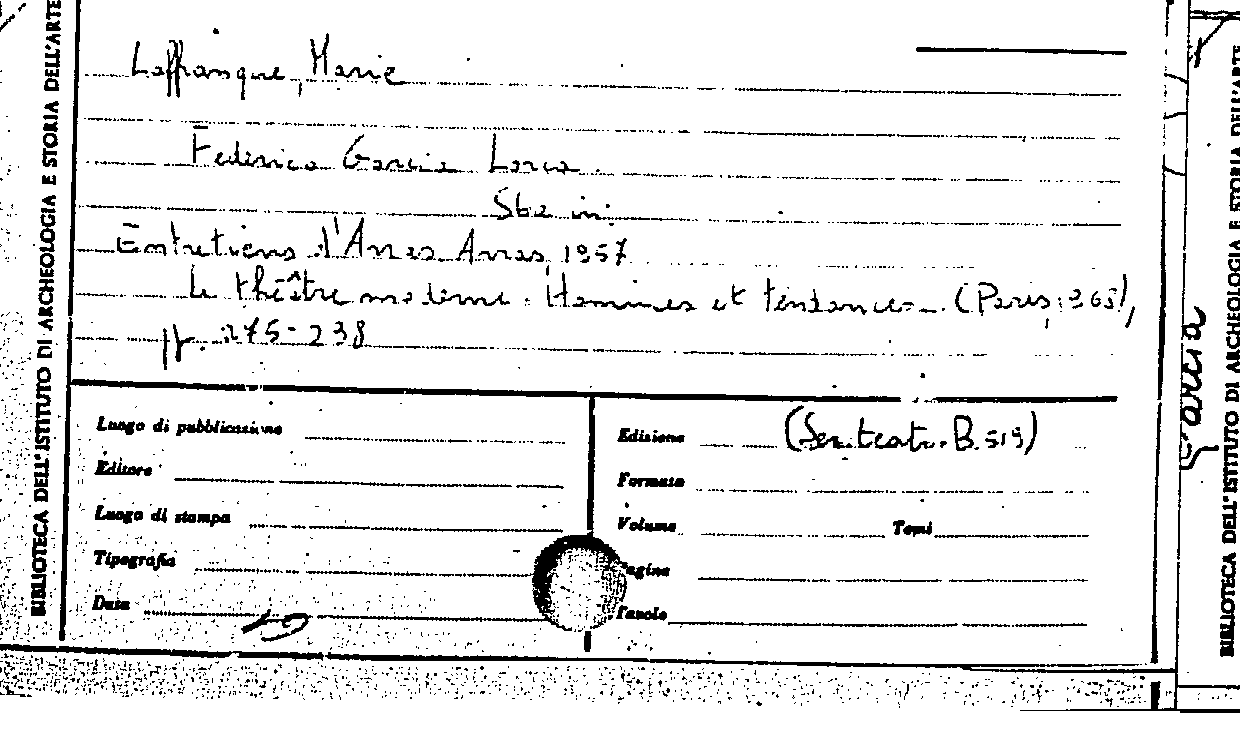 BIBLIOTECA DELL'ISTITUTO DI ARCHEOLOGIA E STORIA DELL'ARTE
Laffranque, Marie
Federico Garcia Lorca.
Sta in:
Entretiens d'Arras Arras 1957
Le théâtre moderne. Hommes et tendances (Paris,
pp. 275-238
Luogo di pubblicazione
Editore
Luogo di stampa
Tipografia
Data
19
Edizione (Ser. teatr. B. 519)
Formato
Volume Tomi
Pagine
Tavole
Garcia
BIBLIOTECA DELL'ISTITUTO DI ARCHEOLOGIA E STORIA DELL'ARTE